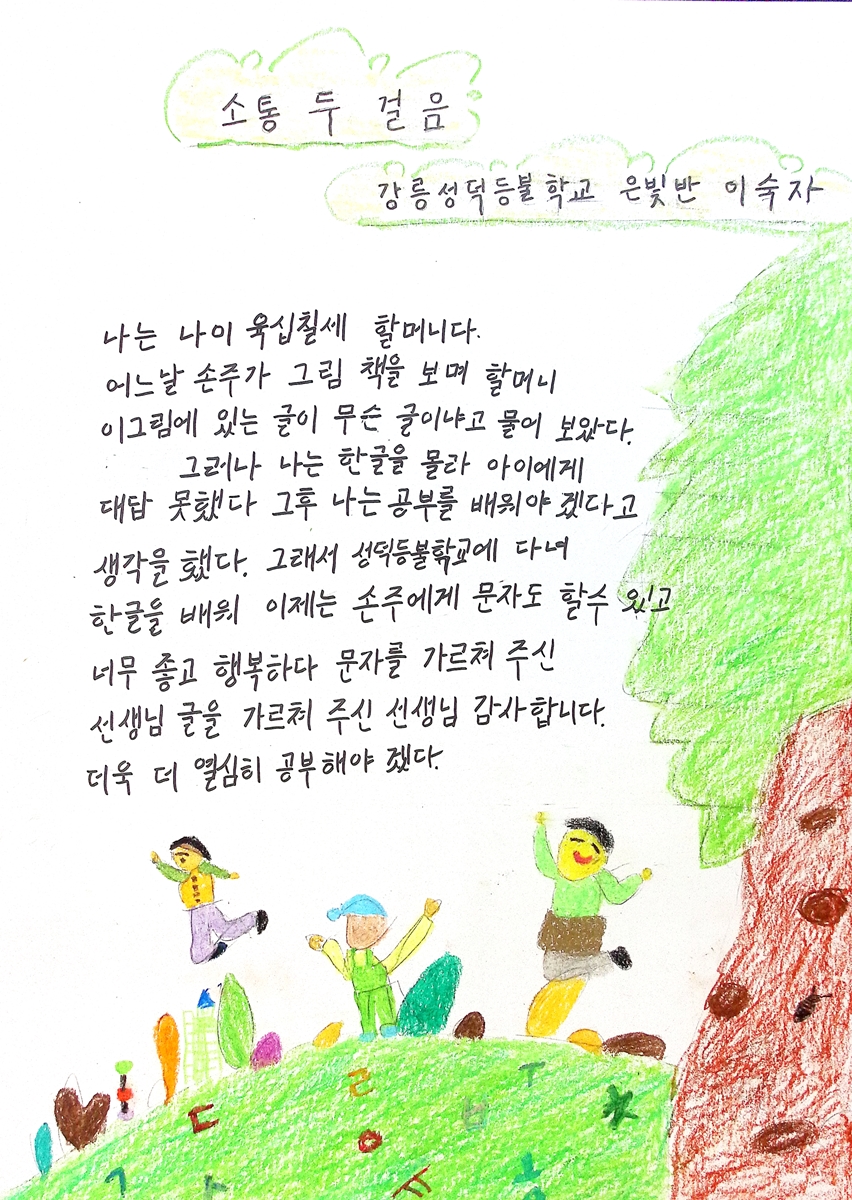 소통 두 걸음
강릉성덕등불학교 은빛반 이숙자
나는 나이 육십칠세 할머니다.
어느날 손주가 그림 책을 보며 할머니
이그림에 있는 글이 무슨 글이냐고 물어 보았다.
그러나 나는 한글을 몰라 아이에게
대답 못했다 그후 나는 공부를 배워야 겠다고
생각을 했다. 그래서 성덕등불학교에 다녀
한글을 배워 이제는 손주에게 문자도 할수 있고
너무 좋고 행복하다 문자를 가르쳐 주신
선생님 글을 가르쳐 주신 선생님 감사합니다.
더욱 더 열심히 공부해야 겠다.
ㄷ ㄹ ㅂ ㅜ
ㅇ
ㄱ ㅏ ㅎ